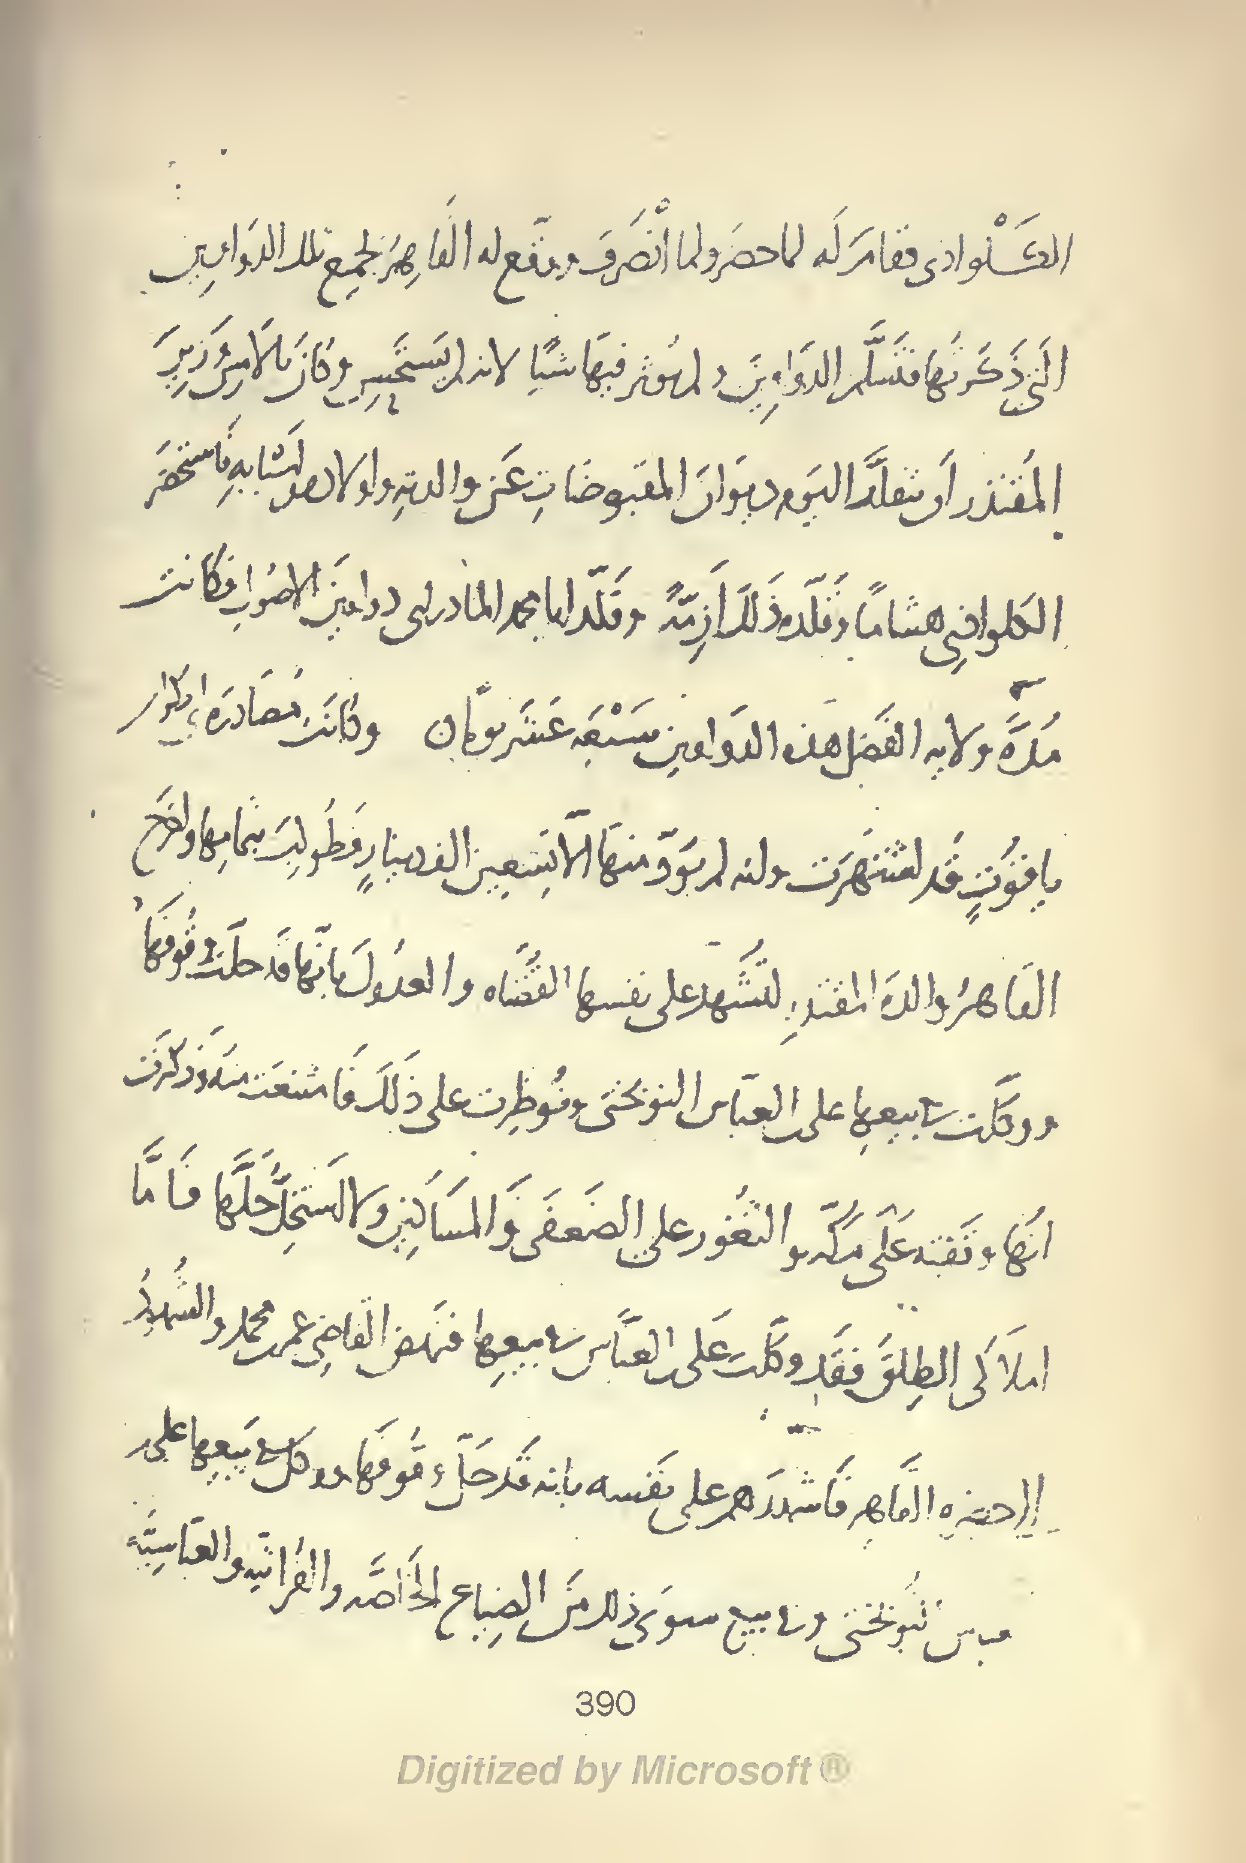 الكَلْواذى فقام له لما حضر ولما أنْصَرَف ووقّع له القاهِرُ بجميع تلك الدواوين
التي ذَكَرتُها فتَسَلَّم الدَوَاوِينَ ولم يؤثر فيها شيًا لانه لم يستَحْسِن وكان بالامس وَزِيرَ
المُقتَدر أن يتقلَّد اليَوم ديوَانَ المقبوضَاتِ عَن والدتِه واولادهِ لمشابه فاستحضر
الكلواذِى هشامًا وقلّده ذَلكَ أزِمّةً وقَلّد ابا محمد الماذرايى دواوينَ الاصُول فكانت
مُدّة ولايه الفَضل هَذه الدَواوين سَبْعَه عَشَر يومًا ن وكانَت مُصَادرَه
ياقوُتٍ قَد اشتهَرَت وانه لم يؤدّ منها الّا تِسعِين الف دينارٍ وَطُولبَ بتمامِها واخرَج
القَاهرُ والدَه المقتدرِ لتُشْهد على نفسها القُضَاه والعدُولَ بانّها قَد حلّت وُقُوفَها
ووكّلت في بيعِها على العبّاس النوبختى ونُوظِرت على ذَلكَ فَامتنعَت منه وَذكرَت
انّها وقَفته عَلَى مكّه والثغُور على الضَعفَى وَالمسَاكِين ولا استَحِلّ حَلّها فَامّا
املاَكى الطِلقَ فقَد وكّلت عَلَى العبّاس في بيعِها فنهض القاضِي عمر بن محمد والشهُودُ
الى حضره القاهِر فَاشهَدَهم على نَفسه بانه قَد حَلّ وقُوفَها ووكّل في بَيعِها على
بن نُوبختى وفى بيع سِوَى ذلك مَن الضِيَاع الخَاصّه والفُراتيه والعبّاسِيّة
390
Digitized by Microsoft ®